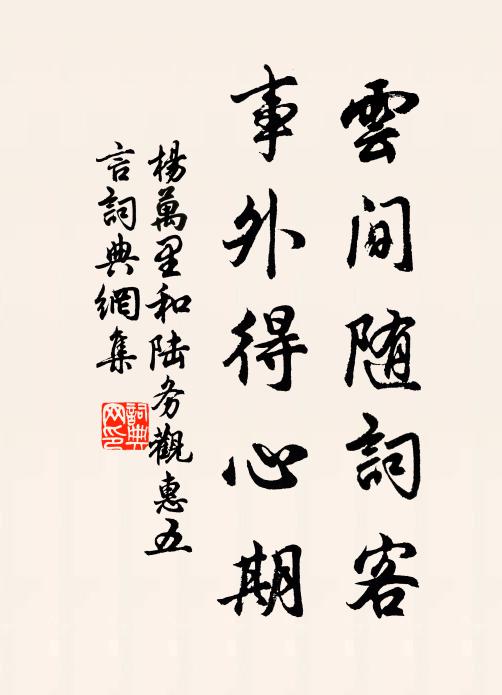 雲間随詞客
事外得心期
楊萬里和陸务觀惠五
言詞典網集
詞典
网印